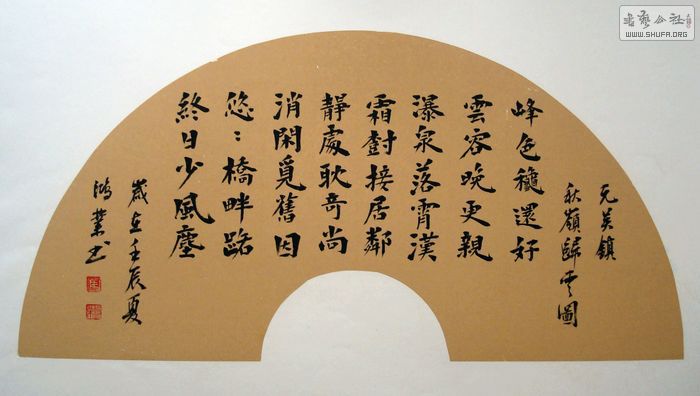 元吴鎮
秋嶺歸雲圖
峰色穠還好
雲容晚更親
瀑泉落霄漢
霜尌接居鄰
靜處耽竒尚
消閑覓舊因
悠:橋畔路
終日少風塵
歲在壬辰夏
鴻業书
書藝公社
WWW.SHUFA.ORG